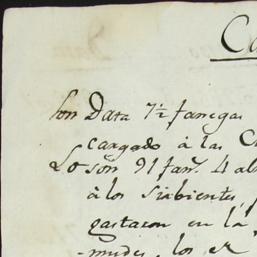 Ca
Son Data 7½ fanegas
cargado á las C
Lo son 91 fan.s 4 al
á los sirbientes,
gastaron en la
los